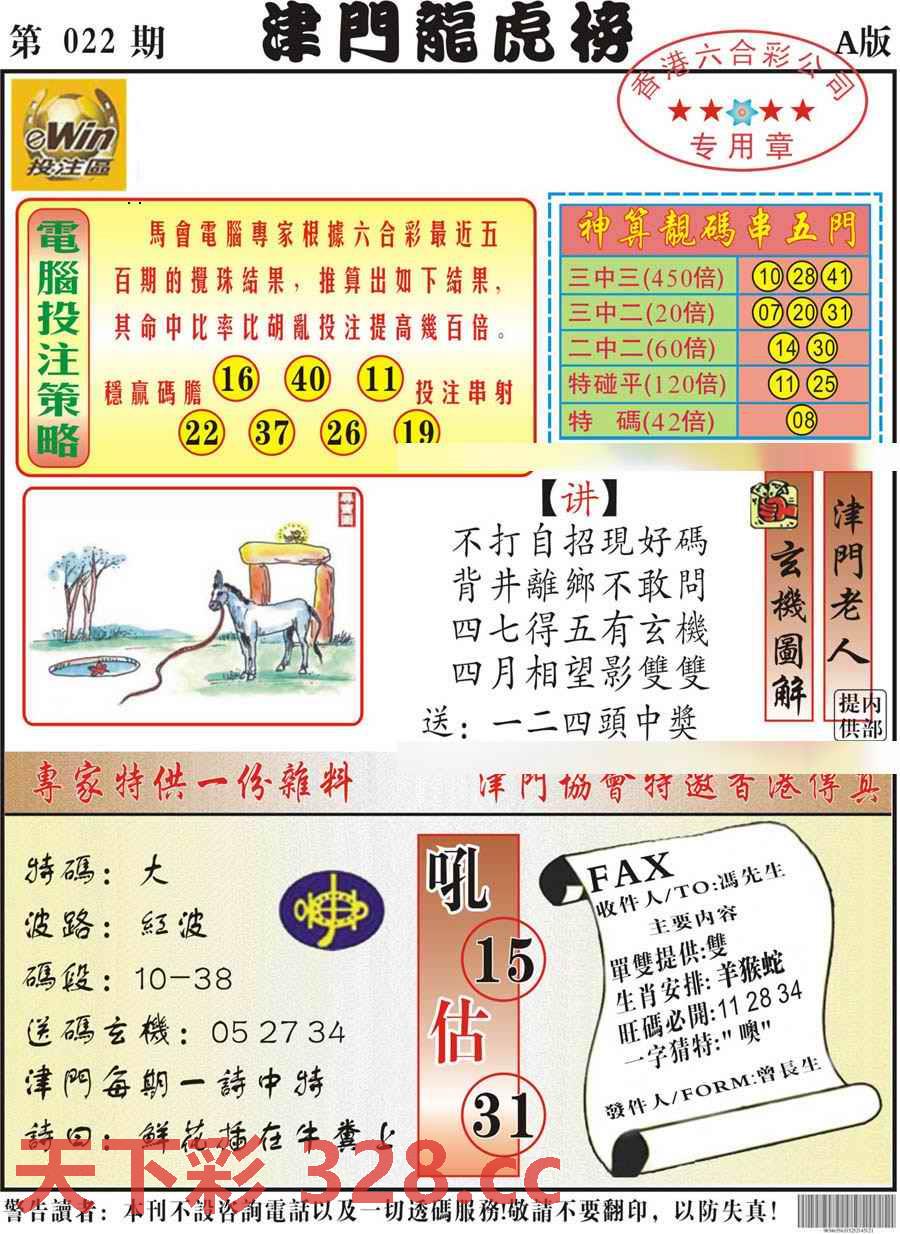 第 022 期
津門龍虎榜
A版
香港六合彩公司
专用章
eWin
投注區
電腦投注策略
馬會電腦專家根據六合彩最近五
百期的攪珠結果，推算出如下結果，
其命中比率比胡亂投注提高幾百倍。
穩贏碼膽 16 40 11 投注串射
22 37 26 19
神算靚碼串五門
三中三(450倍) 10 28 41
三中二(20倍) 07 20 31
二中二(60倍) 14 30
特碰平(120倍) 11 25
特 碼(42倍) 08
【讲】
不打自招現好碼
背井離鄉不敢問
四七得五有玄機
四月相望影雙雙
送：一二四頭中獎
玄機圖解
津門老人
内部提供
專家特供一份雜料
津門協會特邀香港傳真
特碼：大
波路：紅波
碼段：10-38
送碼玄機：05 27 34
津門每期一詩中特
詩曰：鮮花插在牛糞上
吼
15
估
31
FAX
收件人/TO:馮先生
主要内容
單雙提供:雙
生肖安排:羊猴蛇
旺碼必開:11 28 34
一字猜特:"噢"
發件人/FORM:曾長生
天下彩 328.cc
警告讀者：本刊不設咨詢電話以及一切透碼服務!敬請不要翻印，以防失真!